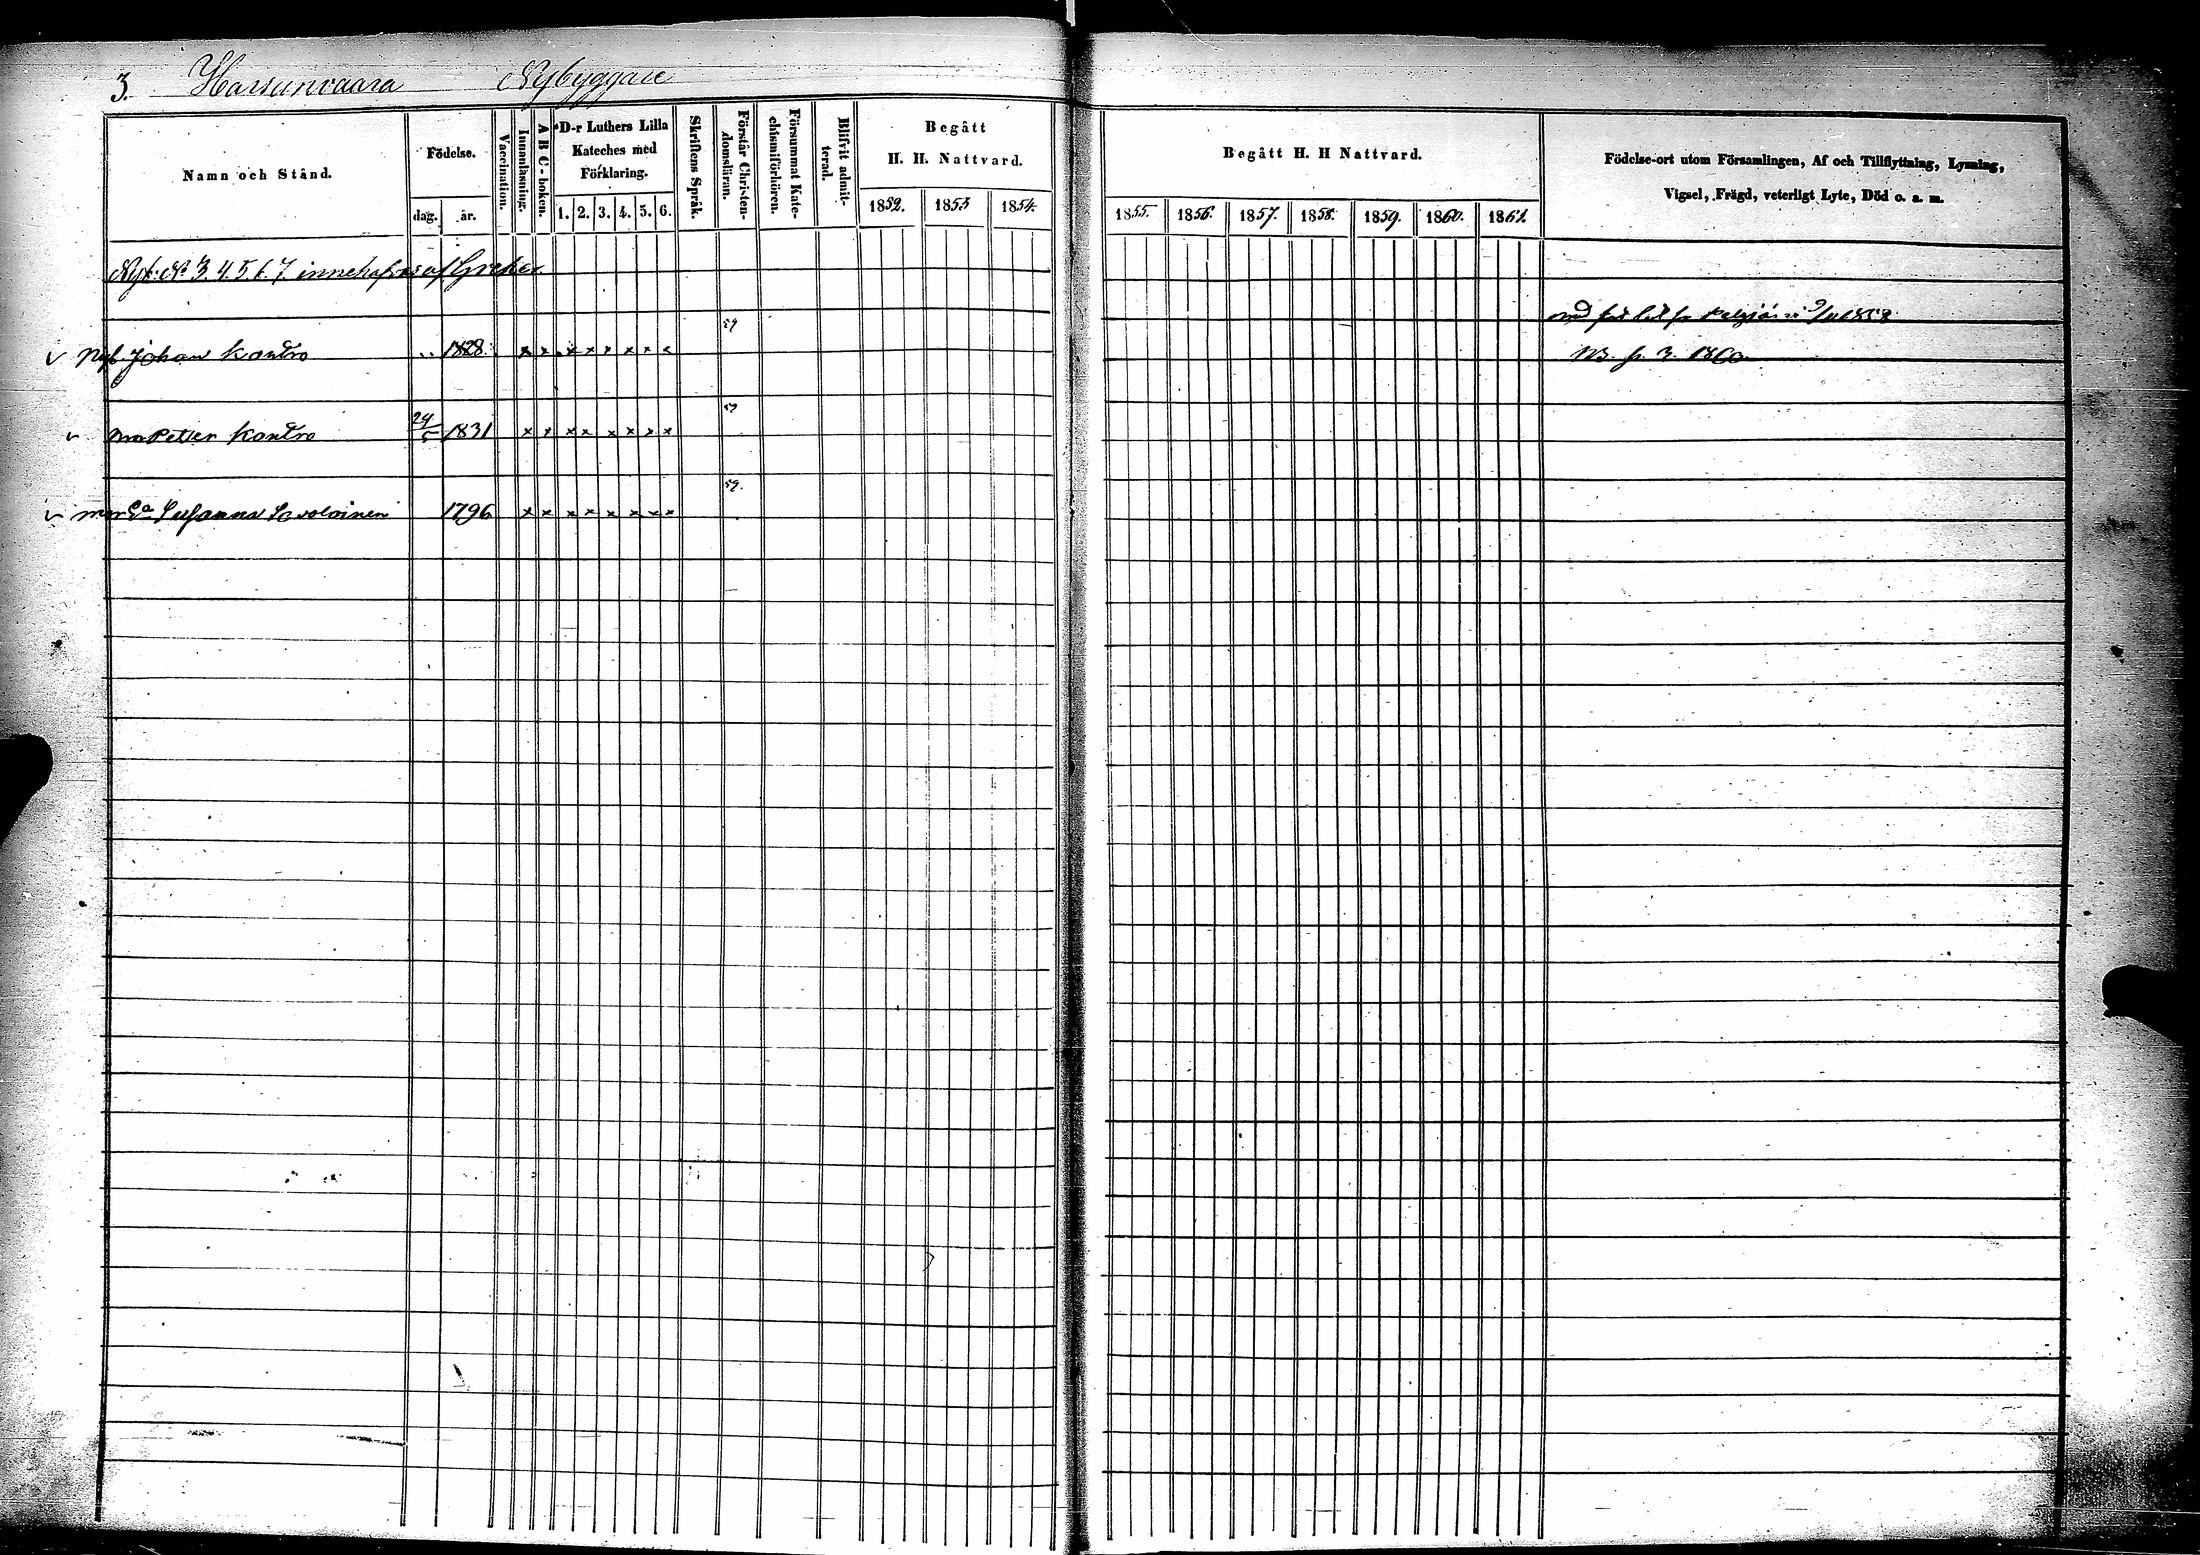 3. Harsunvaara Nybyggare
Namn och Stånd.
Födelse.
dag. år.
Vaccination.
Innanläsning.
A B C-boken.
D-r Luthers Lilla
Kateches med
Förklaring.
1. 2. 3. 4. 5. 6.
Skriftens Språk.
Förstår Christen-
domsläran.
Försummat Kate-
chismiförhören.
Blifvit admit-
terad.
Begått
H. H. Nattvard.
1852. 1853 1854.
Begått H. H Nattvard.
1855. 1856. 1857. 1858. 1859. 1860. 1861.
Födelse-ort utom Församlingen, Af och Tillflyttning, Lysning,
Vigsel, Frägd, veterligt Lyte, Död o. a. m.
Nyb: No 3. 4. 5. 6. 7. innehafvas af Greker
59 1858
Nyb. Johan Kontro 1828 x x x x x x x x
59
Bro Petter Kontro 24/5 1831 x x x x x x x x
59.
mor Susanna 1796 x x x x x x x x